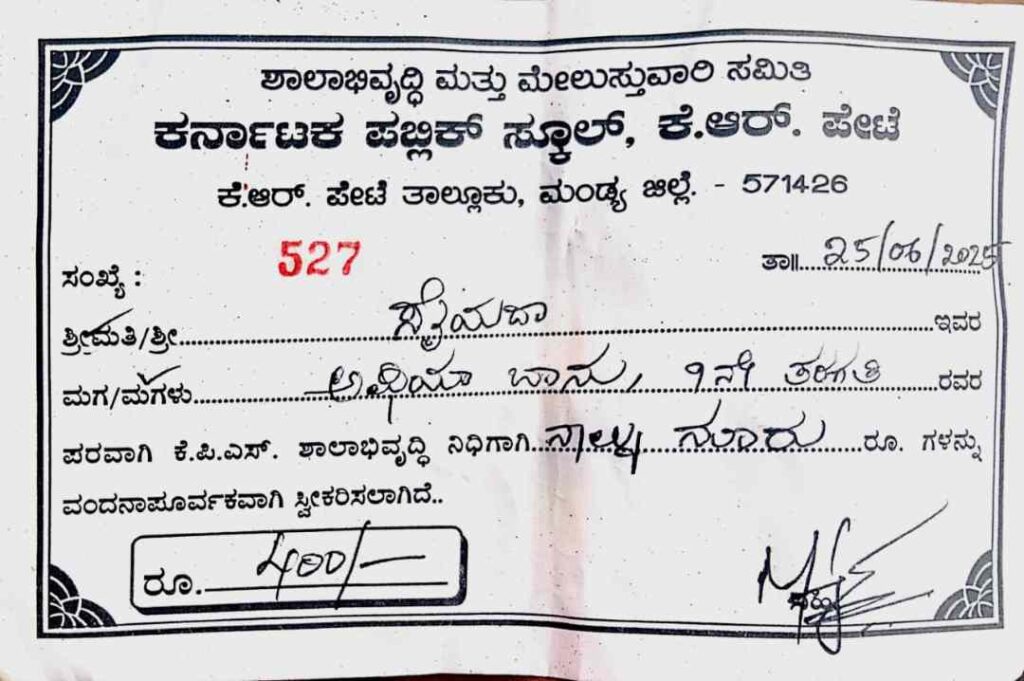 ಶಾಲಾಭಿವೃದ್ಧಿ ಮತ್ತು ಮೇಲುಸ್ತುವಾರಿ ಸಮಿತಿ
ಕರ್ನಾಟಕ ಪಬ್ಲಿಕ್ ಸ್ಕೂಲ್, ಕೆ.ಆರ್. ಪೇಟೆ
ಕೆ.ಆರ್. ಪೇಟೆ ತಾಲ್ಲೂಕು, ಮಂಡ್ಯ ಜಿಲ್ಲೆ. - 571426
ಸಂಖ್ಯೆ : 527 ತಾ॥ 25/06/2025
ಶ್ರೀಮತಿ/ಶ್ರೀ ಇವರ
ಮಗ/ಮಗಳು ಬಾನು, 9ನೇ ತರಗತಿ ರವರ
ಪರವಾಗಿ ಕೆ.ಪಿ.ಎಸ್. ಶಾಲಾಭಿವೃದ್ಧಿ ನಿಧಿಗಾಗಿ ನಾಲ್ಕು ನೂರು ರೂ. ಗಳನ್ನು
ವಂದನಾಪೂರ್ವಕವಾಗಿ ಸ್ವೀಕರಿಸಲಾಗಿದೆ..
ರೂ. 400/-
ಸಹಿ